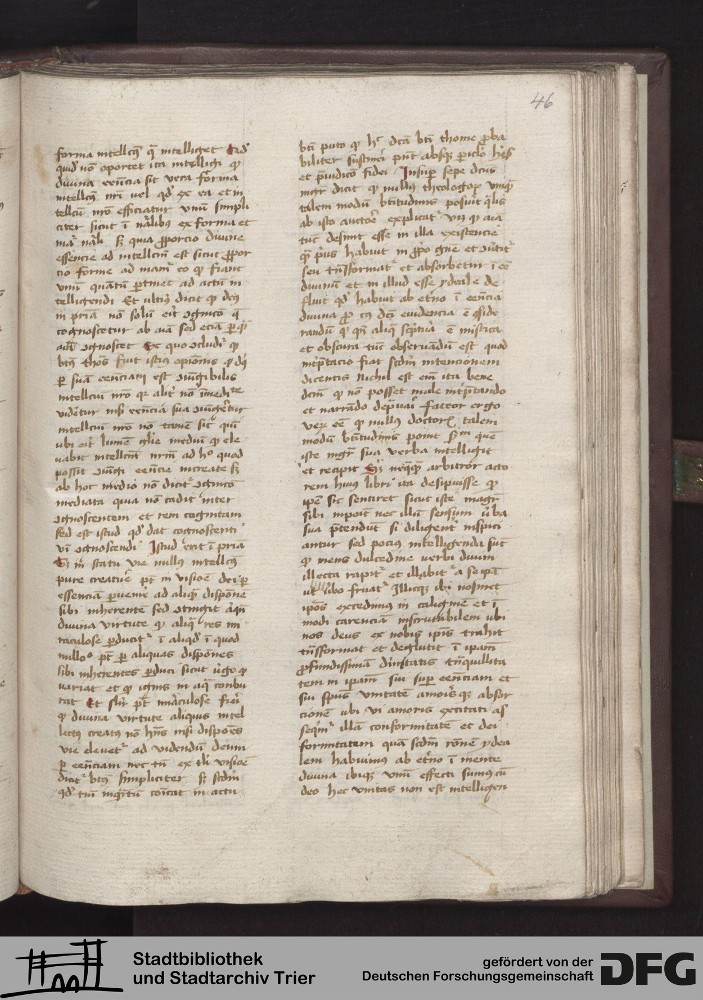 46
forma intellectus qua intelliget
quid non oportet ita intelligi quod
divina essencia sit vera forma
intellectus nostri vel quod ex ea et in
tellectu nostro efficiatur unum simpli
citer sicut in naturalibus ex forma et
materia naturali sed quia proporcio divine
essencie ad intellectum est sicut propor
cio forme ad materiam
unum quantum pertinet ad actum in
telligendi Et ulterius dicit quod deus
in patria non solum erit
cognoscetur ab anima sed eciam per quod
anima cognoscet Ex quo
beatus thomas fuit istius opinionis quod
per suam essenciam est
intellectui nostro
nisi essencia sua
intellectui nostro non tamen sic
ubi erit lumen glorie medium quod ele
vabit intellectum nostrum ad hoc quod
possit essencie increate sed
ab hoc medio non dicitur
mediata quia non cadit inter
cognoscentem et rem cognitam
sed est istud quod dat cognoscenti
vim cognoscendi Istud erit in patria
in statu vie nullus intellectus
pure creature potest in visione dei per
essenciam pervenire ad aliquam disposicionem
sibi inherentem sed
divina virtute quod aliqua res mi
raculose perducatur in aliquid in quod
nullo modo potest per aliquas disposiciones
sibi inherentes perduci sicut virgo quod
pariat et quod ignis in aqua combu
rat Et similiter potest miraculose fieri
quod divina virtute aliquis intel
lectus creatus non habens nisi disposiciones
vie elevetur ad videndum deum
per essenciam nec tamen ex tali visione
dicitur beatus simpliciter sed secundum
quid tantum in actu
beati puto quod hec dicta beati thome proba
biliter sustineri possunt absque periculo heresis
et preiudicio fidei Insuper sepe dictus
magister dicit quod nullus theologorum unquam
talem modum beatitudinis posuit qualis
ab isto auctore explicatur
tunc desinit esse in illa existencia
quam prius habuit in proprio genere et
seu transformatur et absorbetur in esse
divinum et in illud esse ydeale de
fluit quod habuit ab eterno in essencia
divina pro cuius dicti evidencia est conside
randum quod quando aliqua scriptura est mistica
et obscura tunc observandum est quod
interpretacio fiat secundum intencionem
dicentis Nichil est enim ita bene
dictum quod non posset male interpretando
et narrando depravari fateor ergo
verum esse quod nullus doctorum talem
modum beatitudinis ponit secundum que
iste magister sua verba intelligit
et recipit Sed nequaquam arbitror aucto
rem huius libri ita desipuisse quod
ipse sic sentiret sicut iste magister
sibi imponit nec illum sensum verba
sua pretendunt si diligenter inspici
antur sed pocius intelligenda sunt
quod mens dulcedine verbi divini
illecta rapitur et illabitur a se ipsa
ut verbo fruatur Illicque ibi nosmet
ipsos excedimus in caligine et in
modi carenciam inscrutabilem ubi
nos deus ex nobis ipsis trahit
transformat et deglutit in ipsam
profundissimam divinitatis tranquillita
tem in ipsam sui super essenciam et
sui spiritus unitatem amorisque absor
cionem ubi vi amoris excitati as
sequimur illam conformitatem et dei
formitatem quam secundum racionem ydea
lem habuimus ab eterno in mente
divina ibique unum effecti sumus cum
deo hec unitas non est intelligen
Stadtbibliothek
und Stadtarchiv Trier
gefördert von der
Deutschen Forschungsgemeinschaft
DFG